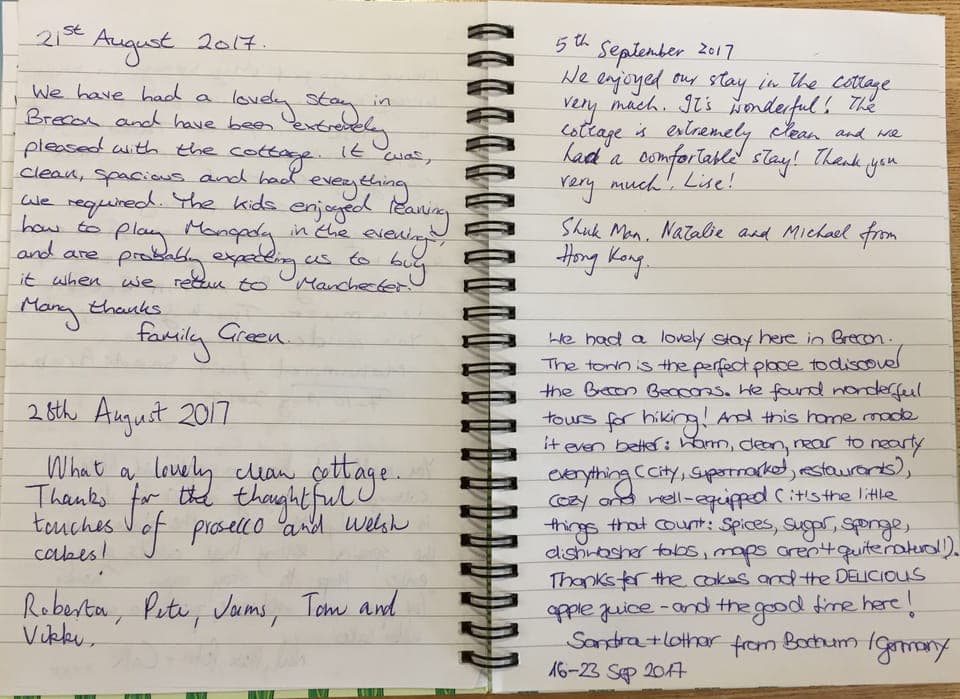 21st August 2017.
We have had a lovely stay in
Brecon and have been extremely
pleased with the cottage. It was,
clean, spacious and had everything
we required. The kids enjoyed leaning
how to play Monopoly in the evenings,
and are probably expecting us to buy
it when we return to Manchester!
Many thanks
Family Green.
28th August 2017
What a lovely clean cottage.
Thanks for the thoughtful
touches of prosecco and welsh
cakes!
Roberta, Pete, James, Tom and
Vikki.
5th September 2017
We enjoyed our stay in the cottage
very much. It's wonderful! The
cottage is extremely clean and we
had a comfortable stay! Thank you
very much, Lise!
Shuk Man, Natalie and Michael from
Hong Kong.
We had a lovely stay here in Brecon.
The town is the perfect place to discover
the Brecon Beacons. We found wonderful
tours for hiking! And this home made
it even better: warm, clean, near to nearly
everything (city, supermarket, restaurants),
cozy and well-equipped (it's the little
things that count: spices, sugar, sponge,
dishwasher tabs, maps aren't quite natural!).
Thanks for the cakes and the DELICIOUS
apple juice - and the good time here!
Sandra + Lothar from Bochum / Germany
16-23 Sep 2017